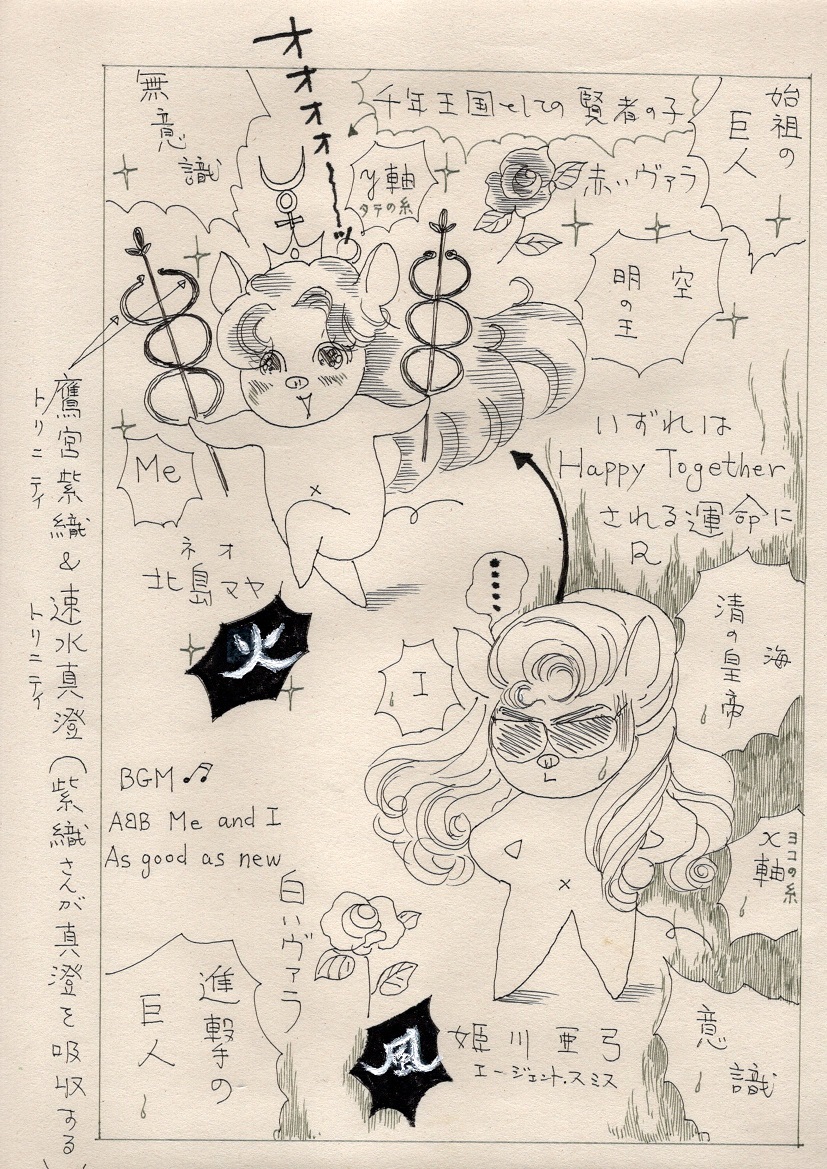 オオオオォーーッ
無意識
千年王国としての賢者の子
始祖の
巨人
y軸
タテの糸
赤いヴァラ
空
明の王
いずれは
Happy Together
される運命に
R
Me
ネオ
北島マヤ
火
鷹宮紫織&速水真澄(紫織さんが真澄を吸収する)
トリニティ
トリニティ
I
海
清の皇帝
ヨコの糸
x軸
BGM♫
ABB Me and I
As good as new
白いヴァラ
進撃の
巨人
風
姫川亜弓
エージェント・スミス
意識